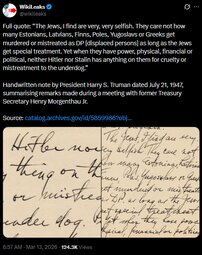 WikiLeaks
@wikileaks
Full quote: "The Jews, I find are very, very selfish. They care not how
many Estonians, Latvians, Finns, Poles, Yugoslavs or Greeks get
murdered or mistreated as DP [displaced persons] as long as the Jews
get special treatment. Yet when they have power, physical, financial or
political, neither Hitler nor Stalin has anything on them for cruelty or
mistreatment to the underdog."
Handwritten note by President Harry S. Truman dated July 21, 1947,
summarising remarks made during a meeting with former Treasury
Secretary Henry Morgenthau Jr.
Source: catalog.archives.gov/id/5859986?obj…
Hitler nor
thing on th
or mistrea
under dog.
The Jews, I find are
very selfish. They care not
murdered or mistreated
D P as long as the
special treatment
6:57 AM · Mar 13, 2026 · 124.3K Views